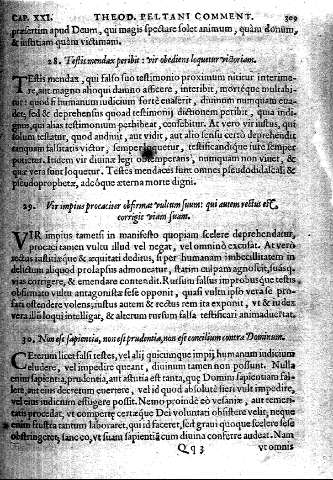 CAP. XXI. THEOD. PELTANI COMMENT. 309
præsertim apud Deum, qui magis spectare solet animum, quàm donum,
& iustitiam quàm victimam.
28. Testis mendax peribit: vir obediens loquetur victoriam.
Testis mendax, qui falso suo testimonio proximum nititur interime-
re, aut magno alioqui damno afficere, interibit, mortéque multabi-
tur: quod si humanum iudicium fortè euaserit, diuinum numquam eua-
det; sed & deprehensus quoad testimonij dictionem peribit, qua indi-
gnus, qui alias testimonium perhibeat, censebitur. At vero vir iustus, qui
solùm testatur, quod audiuit, aut vidit, aut alio sensu certo deprehendit
tanquam falsitatis victor, semper loquetur, testificandíque iure semper
potietur. Itidem vir diuinæ legi obtemperans, numquam non viuet, &
quæ vera sunt loquetur. Testes mendaces sunt omnes pseudodidascali &
pseudoprophetæ, adeóque æterna morte digni.
29. Vir impius procaciter obfirmat vultum suum: qui autem rectus est,
corrigit viam suam.
VIR impius tametsi in manifesto quopiam scelere deprehendatur,
procaci tamen vultu illud vel negat, vel omnino excusat. At verò
rectus iustitiæque & æquitati deditus, si per humanam imbecillitatem in
delictum aliquod prolapsus admoneatur, statim culpam agnoscit, suasq́;
vias corrigere, & emendare contendit. Rursum falsus improbúsque testis
obfirmato vultu antagonistæ sese opponit, quasi vultu ipso vera se pro-
fari ostendere volens; iustus autem & rectus rem ita exponit, vt & iudex
vera illum loqui intelligat, & alterum rursum falsa testificari animaduertat.
30. Non est sapientia, non est prudentia, non est consilium contra Dominum.
Ceterum licet falsi testes, vel alij quicunque impij humanum iudicium
eludere, vel impedire queant, diuinum tamen non possunt. Nulla
enim sapientia, prudentia, aut astutia est tanta, quę Domini sapientiam fal-
lere, aut eius decretum euertere, vel id quod absolutè fieri vult impedire,
vel eius iudicium effugere possit. Nemo proinde eò vefaniæ, aut temeri-
tatis procedat, vt compertę certæque Dei voluntati obsistere velit, neque
enim frustra tantùm laboraret, qui id faceret, sed graui quoque scelere sese
obstringeret, sanè eo, vt suam sapientiā cum diuina conferre audeat. Nam
Qq 3 vt omnis